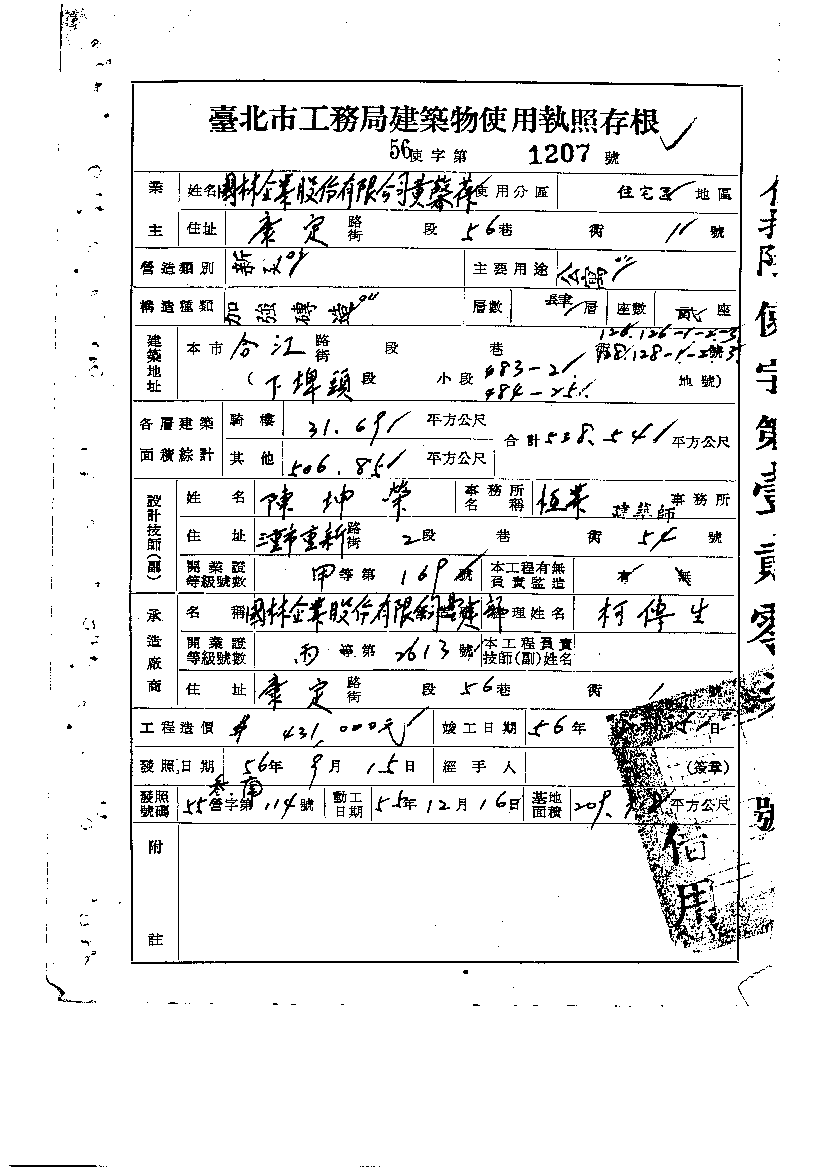 臺北市工務局建築物使用執照存根
56使字第 1207 號
業 姓名 國林企業股份有限公司黃榮 使用分區 住宅區 地區
主 住址 康定 路街 段 56巷 衖 11號
營造類別 新 主要用途 公寓
構造種類 加強磚造 層數 肆層 座數 貳座
建築地址 本市 合江 路街 段 巷 衖 126.126-1-2-3 128.128-1-2-3號
(下埤頭段 小段 483-21 484-25 地號)
各層建築面積綜計 騎樓 31.69 平方公尺 合計 538.54 平方公尺
其他 506.85 平方公尺
設計技師(副) 姓名 陳坤榮 事務所名稱 恒業 建築師 事務所
住址 三重市重新 路街 2段 巷 衖 54號
開業證等級號數 甲等第 169號 本工程有無負責監造 有 無
承造廠商 名稱 國林企業股份有限公司營建部 經理姓名 柯傳生
開業證等級號數 丙等第 2613號 本工程負責技師(副)姓名
住址 康定 路街 段 56巷 衖 1號
工程造價 $431,000元 竣工日期 56年 日
發照日期 56年9月15日 經手人 (簽章)
發照號碼 55營字第114號 動工日期 55年12月16日 基地面積 209. 平方公尺
附註
使字第壹貳零 號
借用